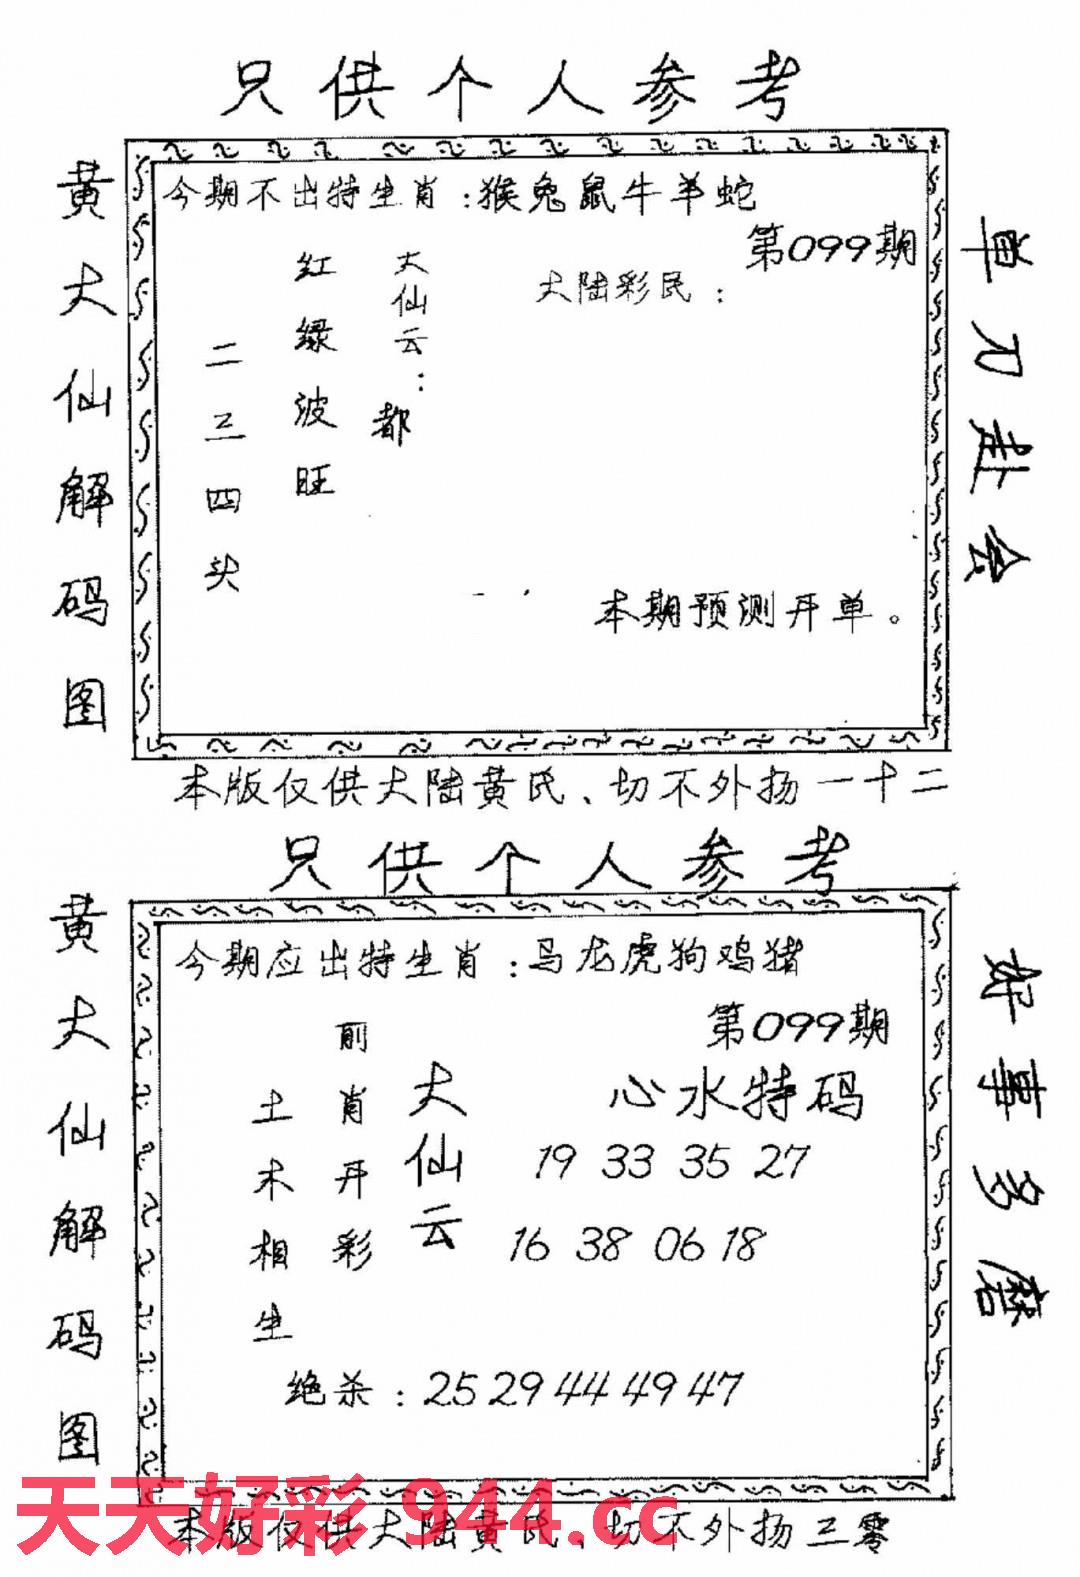 只供个人参考
黄大仙解码图
今期不出特生肖：猴兔鼠牛羊蛇
第099期
大陆彩民：
大仙云：
都
红绿波旺
二三四头
本期预测开单。
单刀赴会
本版仅供大陆黄氏、切不外扬一十二
只供个人参考
黄大仙解码图
今期应出特生肖：马龙虎狗鸡猪
第099期
心水特码
19 33 35 27
16 38 06 18
大仙云
前肖开彩
土木相生
绝杀：25 29 44 49 47
好事多磨
天天好彩 944.cc
本版仅供大陆黄氏、切不外扬三零